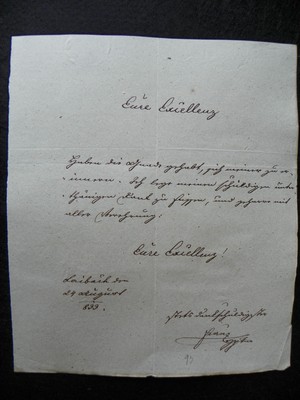 Eure Excellenz
Haben die Gnade gehabt, sich meiner zu er-
innern. Ich lege meinen schuldigen unter-
thänigen Dank zu Füssen, und geharre mit
aller Verehrung!
Eure Excellenz!
Laibach den
29 August
833.
stets dankschuldigster
Franz